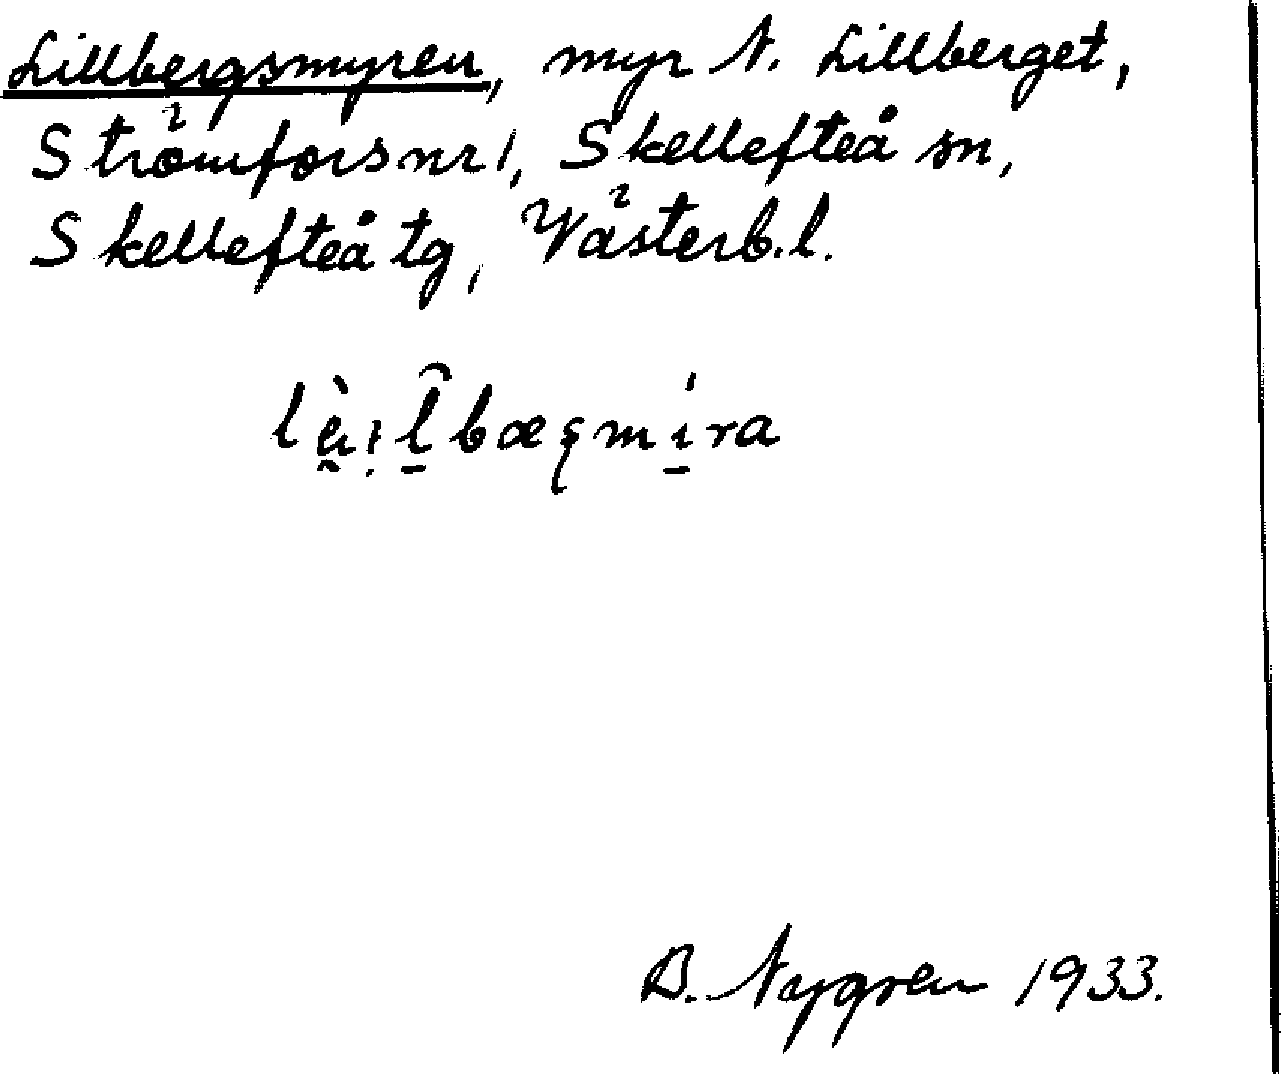 Lillbergsmyren, myr N. Lillberget,
Strömfors nr 1, Skellefteå sn,
Skellefteå tg, Västerb.l.
B. Nygren 1933.